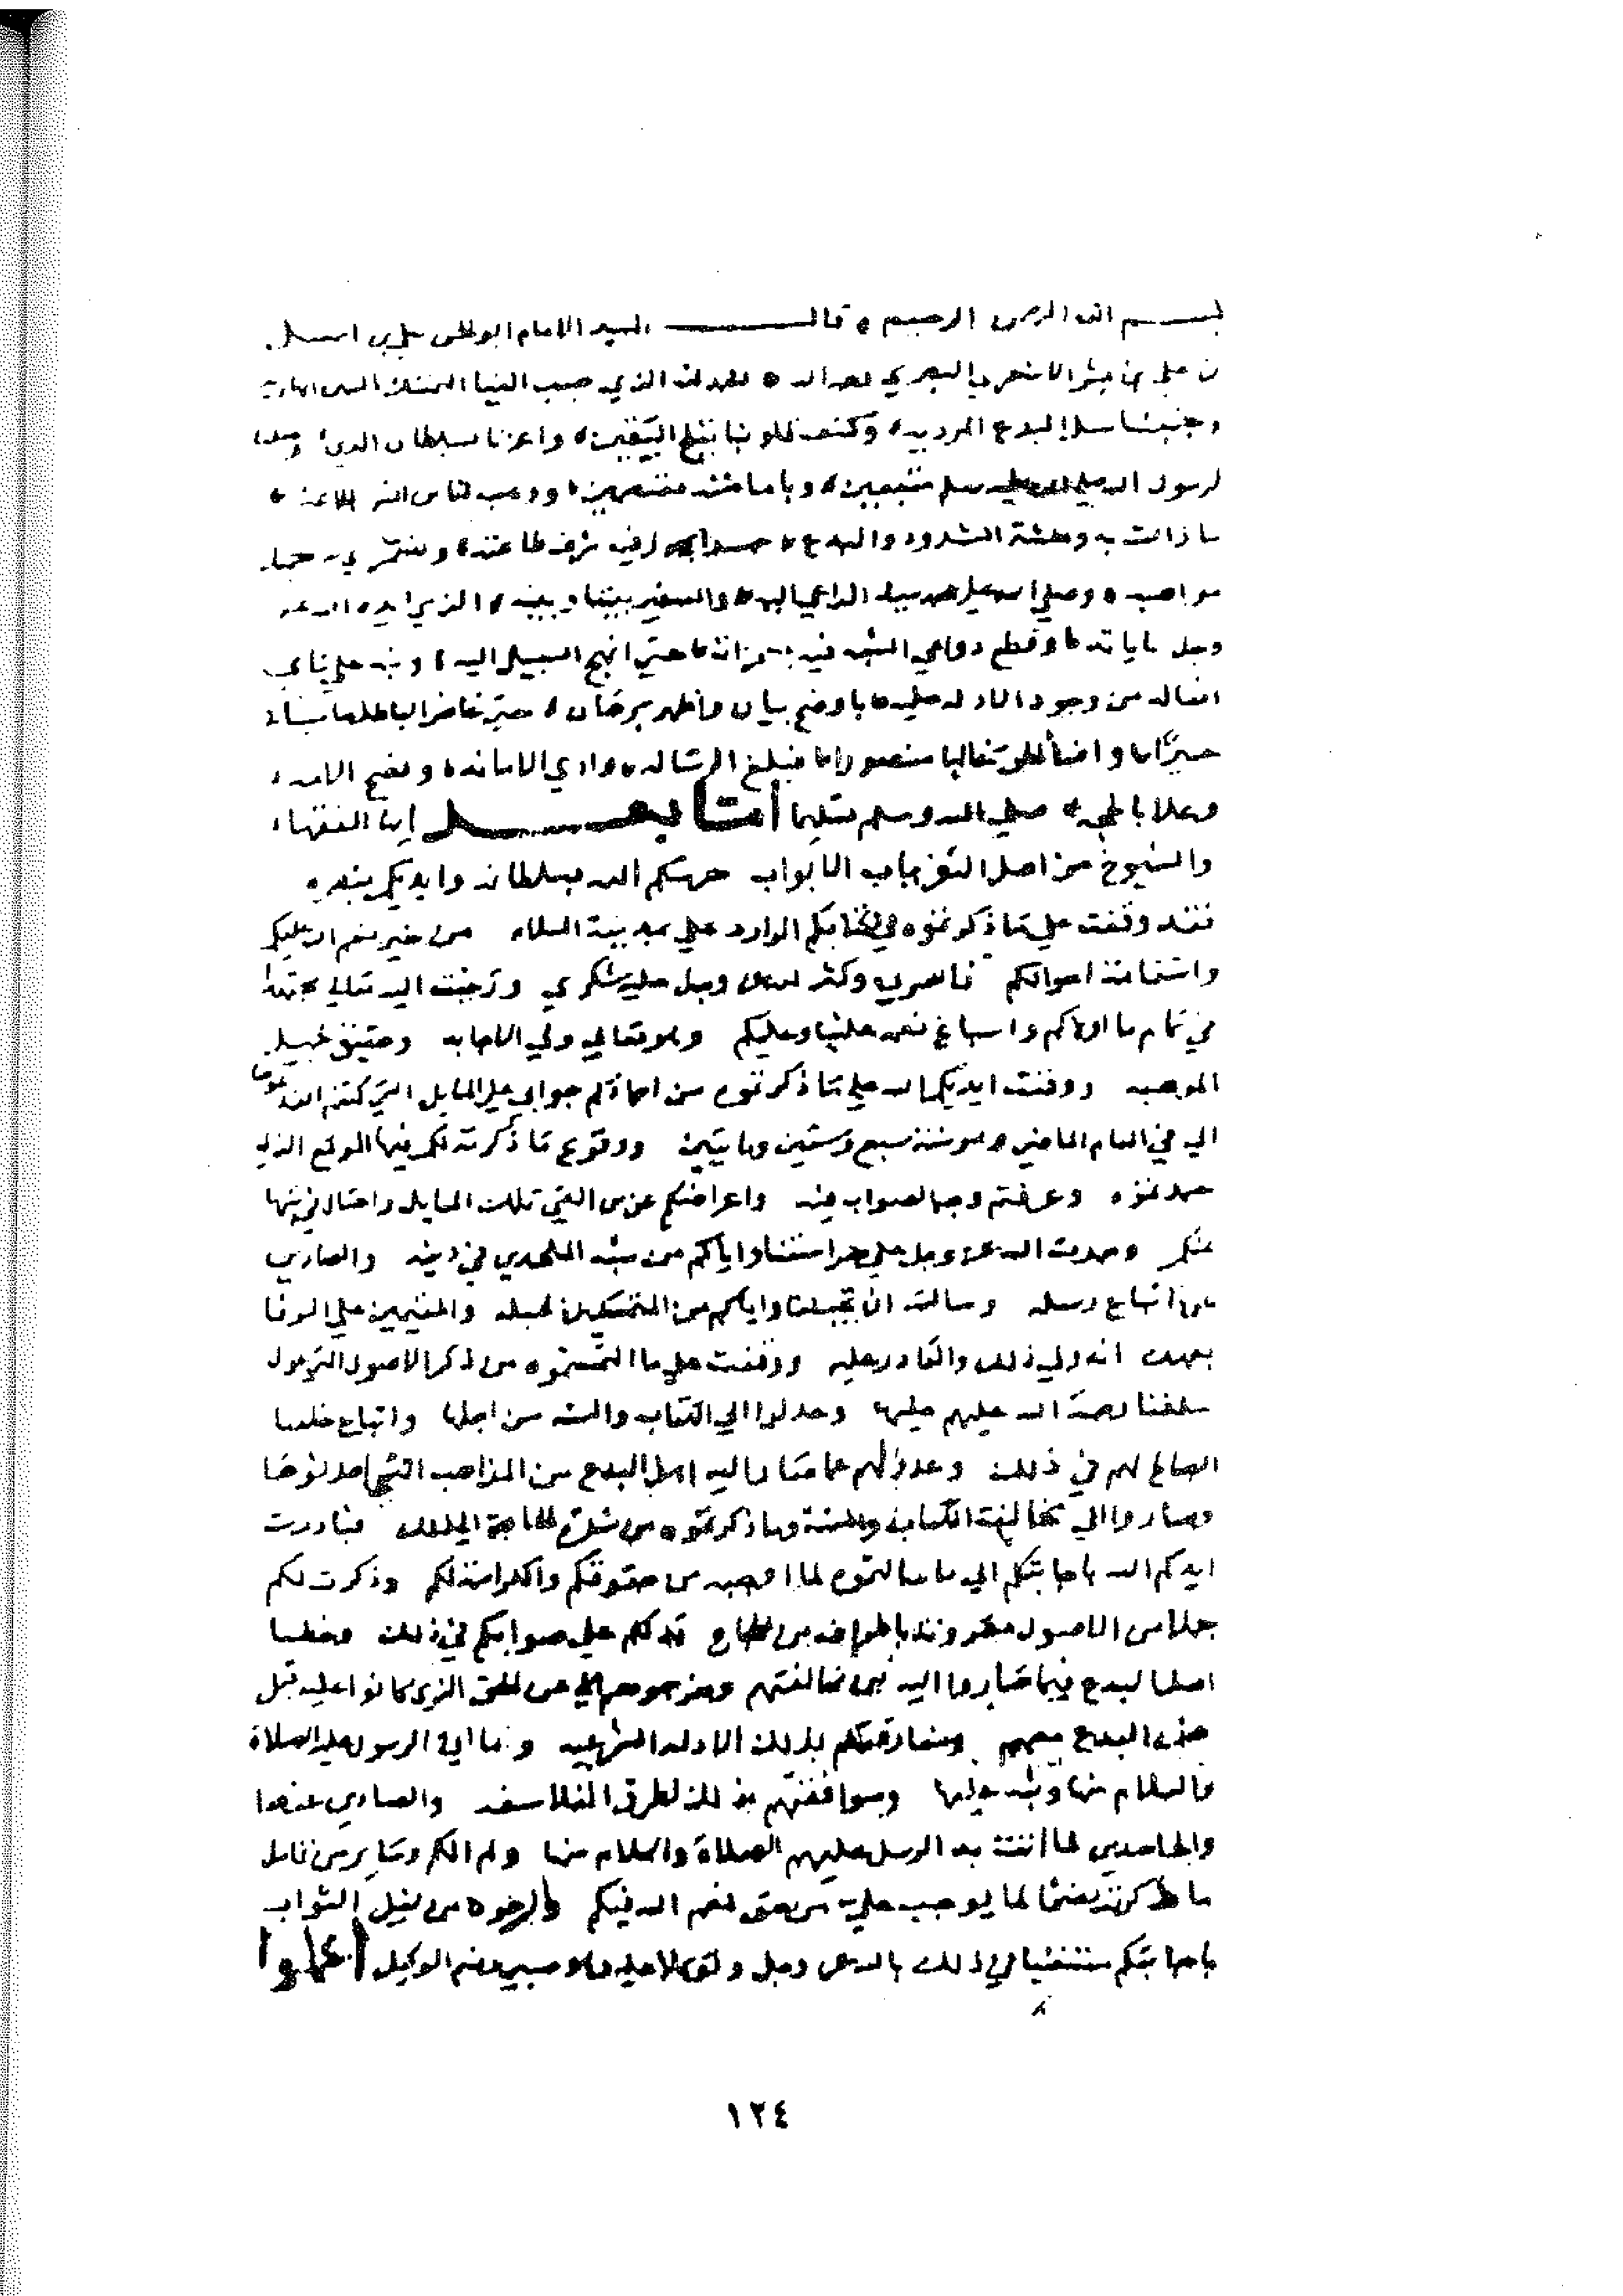 بسم الله الرحمن الرحيم ه قال السيد الامام ابو الحسن علي بن اسمعيل
بن علي بن بشر الاشعري البصري رحمه الله ه الحمد لله الذي حبب الينا التمسك بالسنن الهادية
وجنبنا سبل البدع المردية وكنف قلوبنا بثلج اليقين واعزنا بسلطان الدين وجعلنا
لرسول الله صلى الله عليه وسلم متبعين وباماننه معتصمين ووهب لنا من انس الجماعة
ما زالت به وحشة الشذوذ والبدع حمدا يمتري
مواهبه وصلى الله على محمد نبيه الداعي اليه والسفير بيننا وبينه الذي ايده الله عز
وجل باياته وقطع دواعي الشبه فيه بمعجزاته حتى انهج السبيل اليه ونبه على
افعاله من وجود الادلة عليه باوضح بيان واظهر برهان حتى غاض الباطل
واضا الحق غالبا منصورا فبلغ الرسالة وادي الامانة ونصح الامة
وعلا بالحجة صلى الله وسلم تسليما أما بعد ايها الفقهاء
والشيوخ من اهل الثغر بباب الابواب حرسكم الله بسلطانه وايدكم بنصره
فقد وقفت على ما ذكرتموه في كتابكم الوارد علي بمدينة السلام من خبر نعم الله عليكم
واستقامة احوالكم فاسرني وكثر لله عز وجل عليه شكري ورغبت اليه تعالى مجتهدا
في تمام ما اولاكم واسباغ نعمه علينا وعليكم وهو تعالى ولي الاجابة وحقيق بجميل
الموهبة ووقفت ايدكم الله على ما ذكرتموه من احمادكم جوابي على المسايل التي كنتم انفذتموها
الي في العام الماضي وهو سنة سبع وستين ومايتين ووقوع ما ذكرته لكم فيها الموقع الذي
حمدتموه وعرفتم وجه الصواب فيه واعراضكم عمن القى تلك المسايل واحتال في بثها
عنكم وحمدت الله عز وجل على حراستنا واياكم من شبه الملحدين في دينه والصادين
عن اتباع رسله وسالته ان يجعلنا واياكم من المتمسكين بحبله والمقيمين على الوفا
بعهده انه ولي ذلك والقادر عليه ووقفت على ما التمستموه من ذكر الاصول التي عول
سلفنا رحمة الله عليهم عليها وعدلوا الى الكتاب والسنة من اجلها واتباع خلفنا
الصالح لهم في ذلك وعدولهم عما صار اليه اهل البدع من المذاهب التي احدثوها
وصاروا الى مخالفة الكتاب والسنة وما ذكرتموه من شدة الحاجة الى ذلك فبادرت
ايدكم الله باجابتكم الى ما سالتموه لما اوجبه من حقوقكم والكرامة لكم وذكرت لكم
جملا من الاصول مقرونة باطراف من الحجاج تدلكم على صوابكم في ذلك وخطا
اهل البدع فيما صاروا اليه من مخالفتهم وخروجهم عن الحق الذي كانوا عليه قبل
هذه البدع معهم ومفارقتهم بذلك الادلة الشرعية وما اتى الرسول عليه الصلاة
والسلام منها ونبه عليها وموافقتهم بذلك لطرق الفلاسفة والصادين عنها
والجاحدين لما اتت به الرسل عليهم الصلاة والسلام منها ولم الكم وساير من تامل
ما ذكرته نصحا لما يوجب علي من حق نعم الله فيكم وارجوه من نيل الثواب
باجابتكم مستعينا في ذلك بالله عز وجل وتوكلا عليه وهو حسبي ونعم الوكيل اعلموا
١٢٤